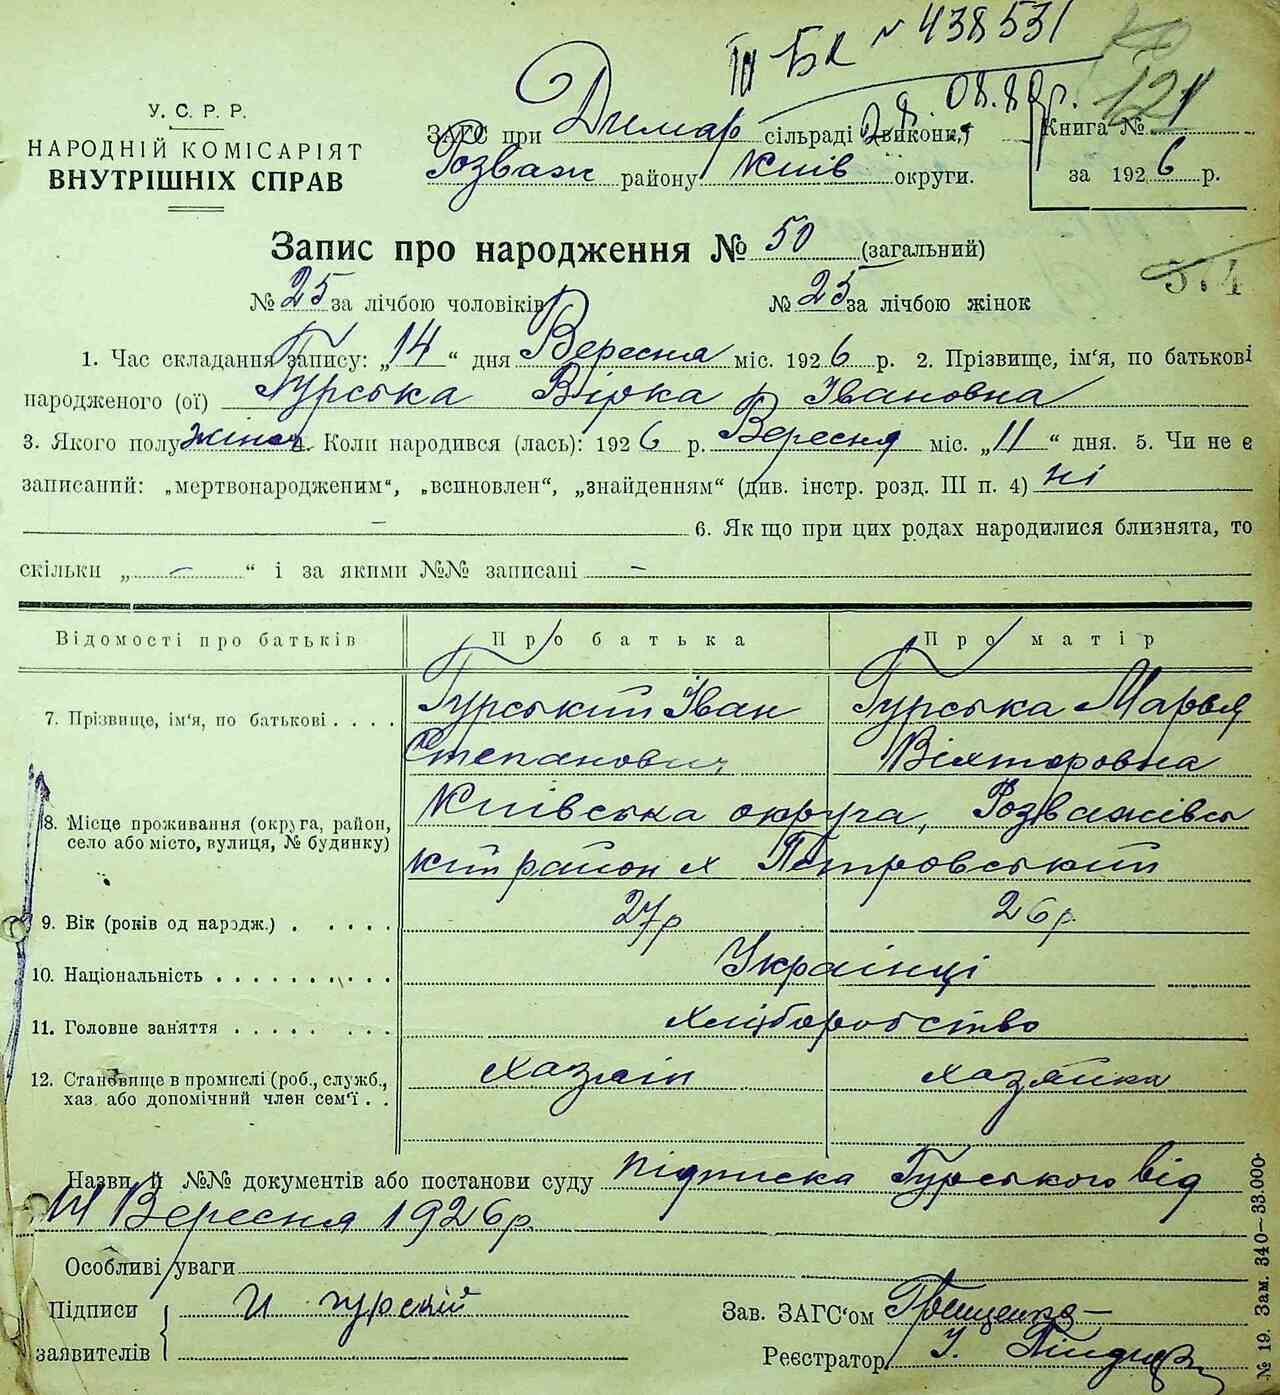 БК № 438531
08.80р.
121
У. С. Р. Р.
НАРОДНІЙ КОМІСАРІЯТ
ВНУТРІШНІХ СПРАВ
ЗАГС при Димар сільраді (виконк.)
Розваж району Київ округи.
Книга №
за 1926 р.
Запис про народження № 50 (загальний)
№ 25 за лічбою чоловіків № 25 за лічбою жінок
1. Час складання запису: „14“ дня Вересня міс. 1926 р. 2. Прізвище, ім'я, по батькові
народженого (ої) Гурська Вірка Івановна
3. Якого полу жіноч 4. Коли народився (лась): 1926 р. Вересня міс. „11“ дня. 5. Чи не є
записаний: „мертвонародженим“, „всиновлен“, „знайденням“ (див. інстр. розд. III п. 4) ні
— 6. Як що при цих родах народилися близнята, то
скільки „ — “ і за якими №№ записані —
Відомості про батьків Про батька Про матір
7. Прізвище, ім'я, по батькові . . . . Гурський Іван Гурська Марья
Степанович Вікторовна
8. Місце проживання (округа, район, село або місто, вулиця, № будинку) Київська округа, Розважівсь
кий район х Петровський
9. Вік (років од народж.) . . . . . 27р 26р.
10. Національність . . . . . . . . . . Українці
11. Головне заняття . . . . . . . . Хліборобство
12. Становище в промислі (роб., служб., хаз. або допомічний член сем'ї . . Хазяін Хазяйка
Назви й №№ документів або постанови суду підписка Гурського від
14 Вересня 1926р.
Особливі уваги
Підписи заявителів И Гурский
Зав. ЗАГС'ом
Реєстратор
№ 19. Зам. 340—33.000